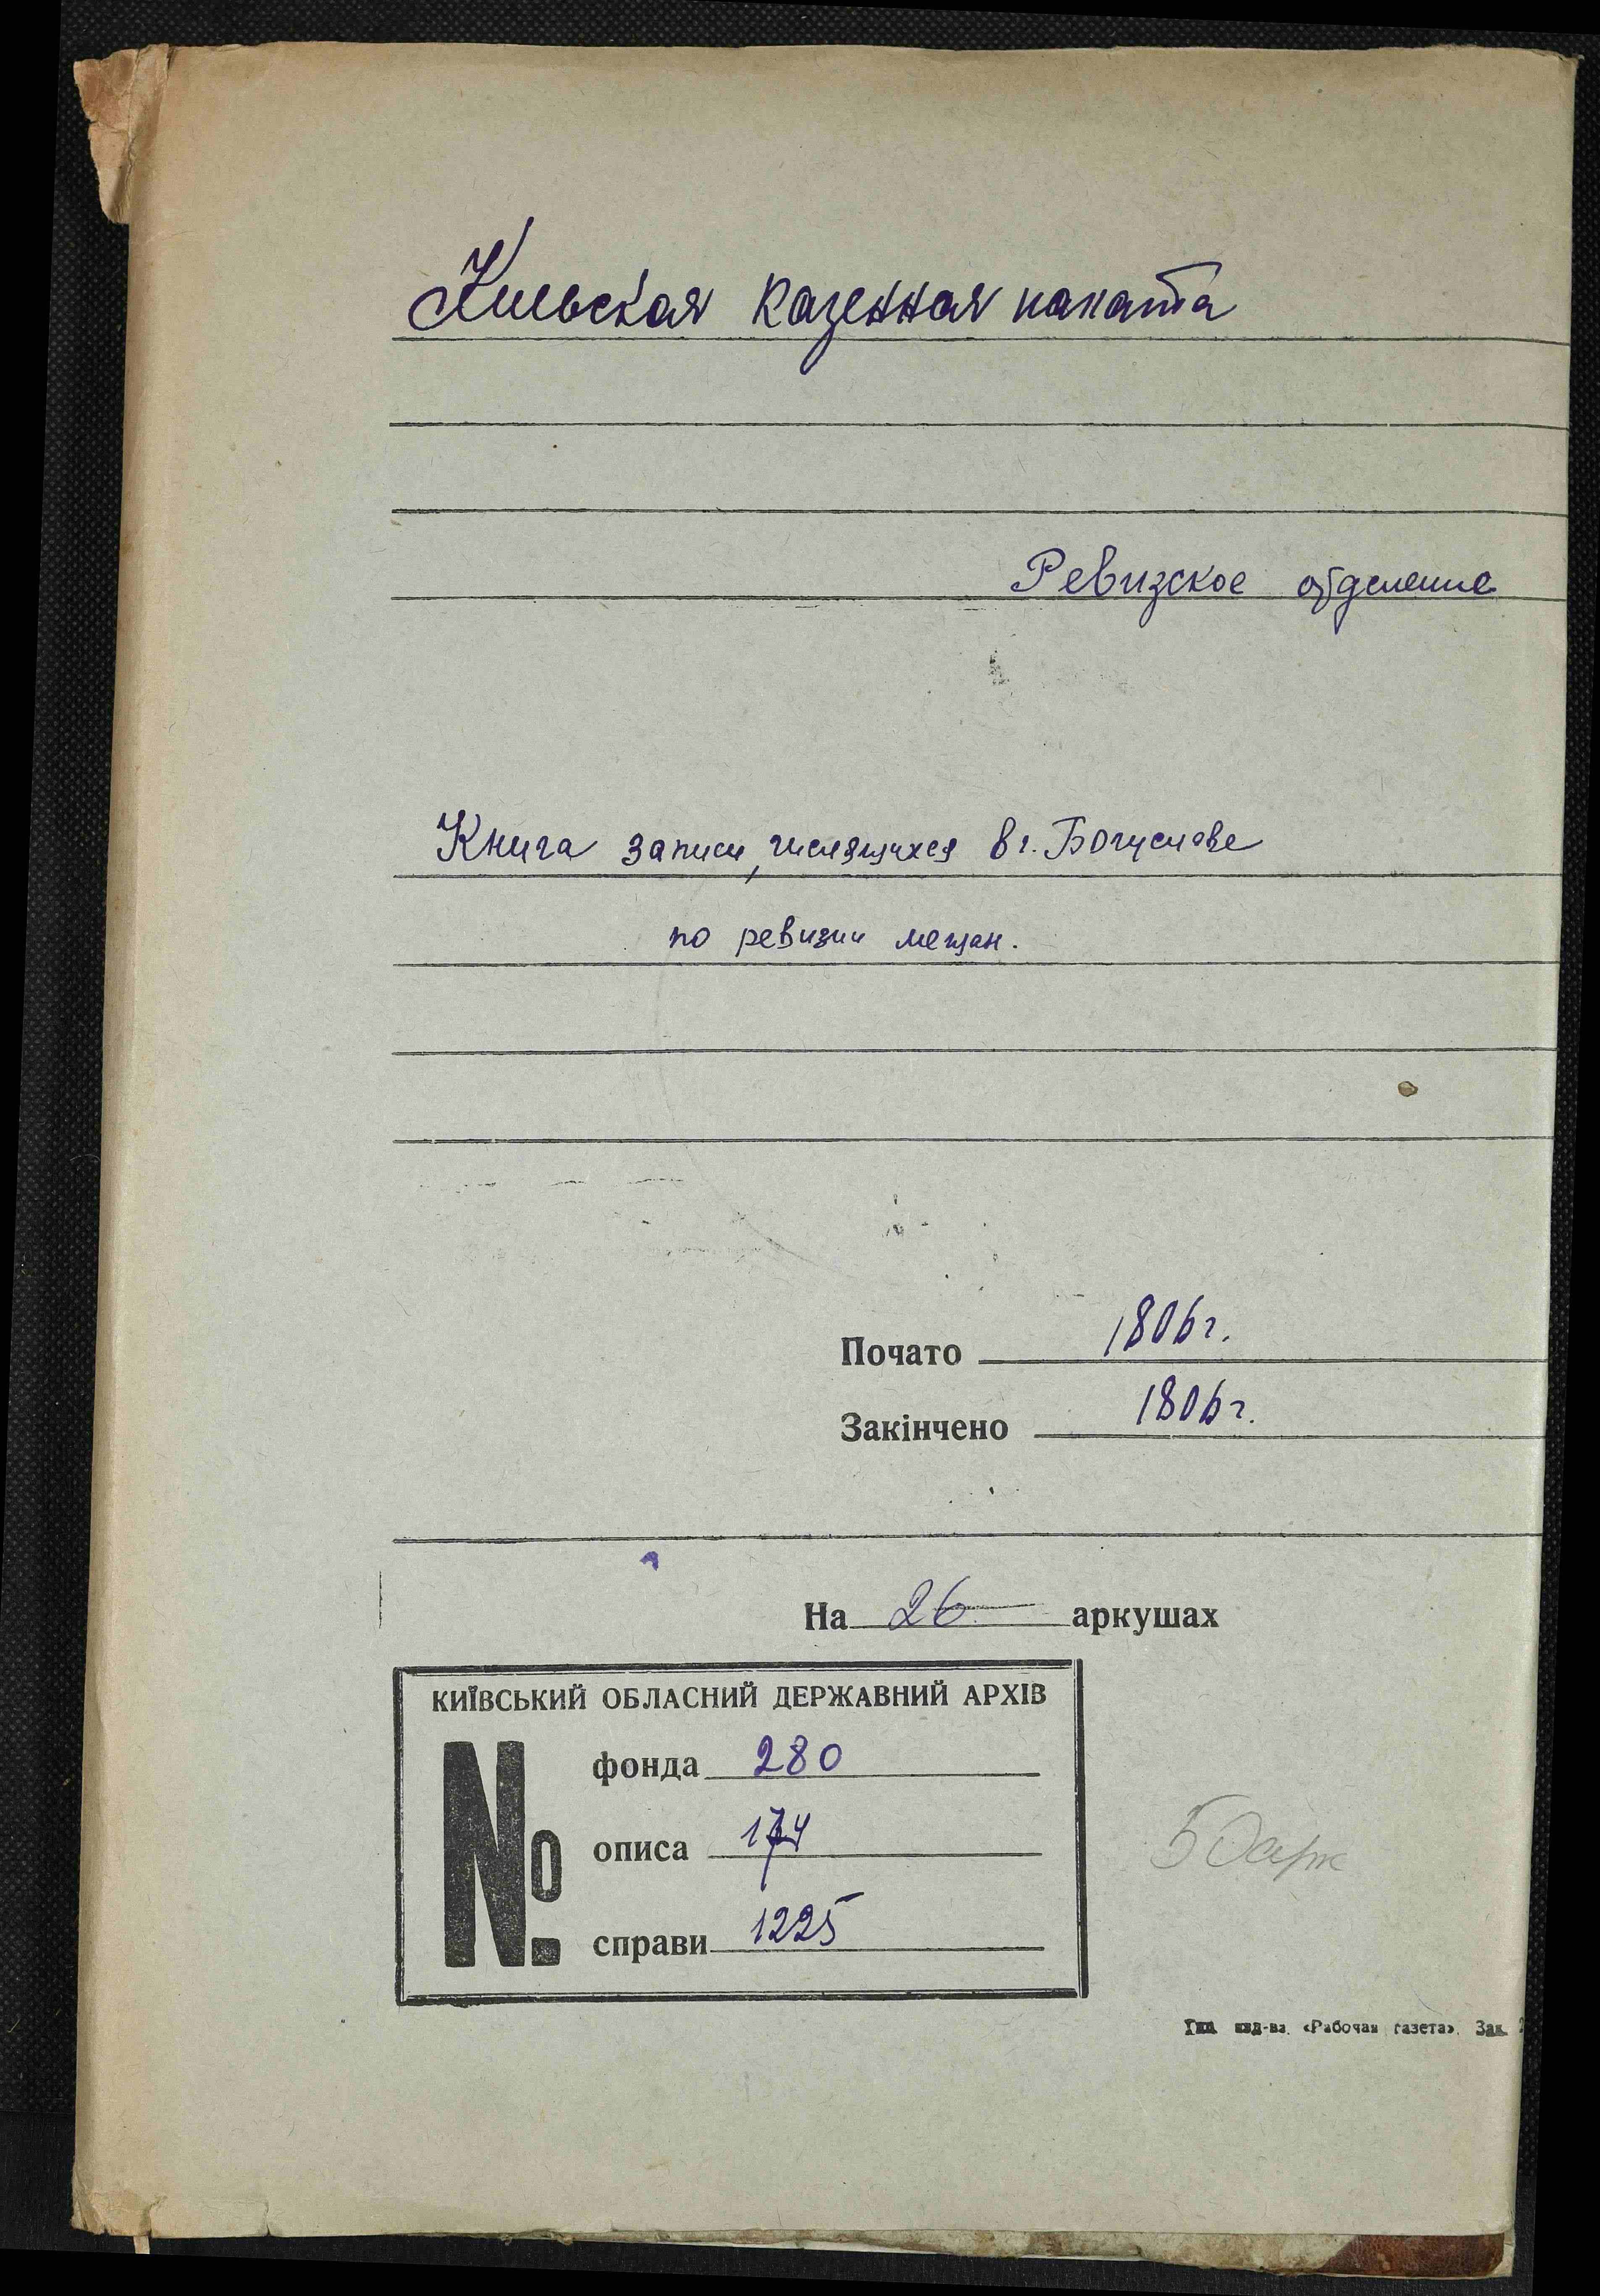 Киевская казенная палата
Ревизское отделение
Книга записи, числящихся в г. Богуславе
по ревизии мещан.
Почато 1806 г.
Закінчено 1806 г.
На 26 аркушах
КИЇВСЬКИЙ ОБЛАСНИЙ ДЕРЖАВНИЙ АРХІВ
№
фонда 280
описа 174
справи 1225
«Рабочая газета». Зак.